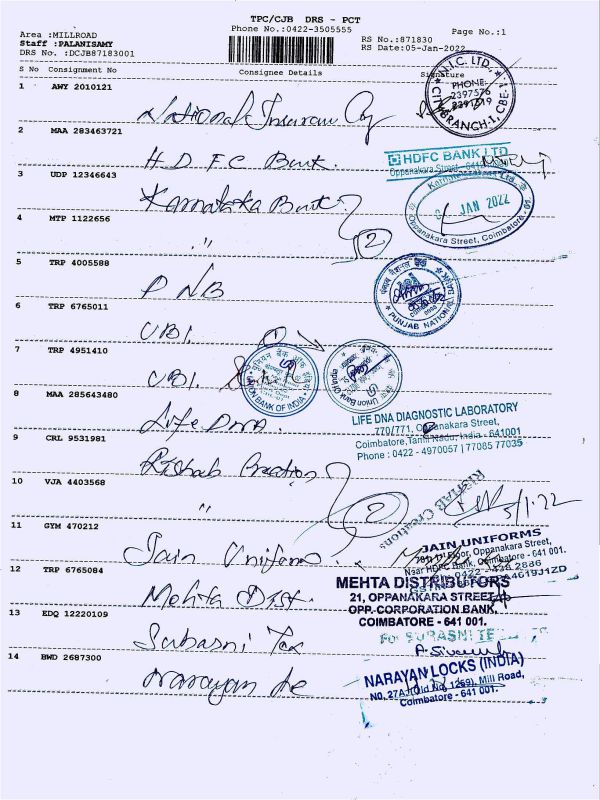 TPC/CJB DRS - PCT
Phone No.:0422-3505555
Page No.:1
Area :MILLROAD
Staff :PALANISAMY
DRS No. :DCJB87183001
RS No.:871830
RS Date:05-Jan-2022
S No Consignment No Consignee Details Signature
1 AWY 2010121
National Insurance Coy
N.I.C. LTD.,
PHONE:
2397576
CITY BRANCH-1, CBE-1
2 MAA 283463721
H D F C Bank.
HDFC BANK LTD
Oppanakara Street,
3 UDP 12346643
Karnataka Bank
JAN 2022
Oppanakara Street, Coimbatore - 01.
4 MTP 1122656
"
2
5 TRP 4005588
PNB
पंजाब नैशनल बैंक
PUNJAB NATIONAL BANK
6 TRP 6765011
UBI.
7 TRP 4951410
UBI.
UNION BANK OF INDIA
Union Bank of India
8 MAA 285643480
Life Dna.
LIFE DNA DIAGNOSTIC LABORATORY
770/771, Oppanakara Street,
Coimbatore, Tamil Nadu, India - 641001
Phone : 0422 - 4970057 | 77085 77035
9 CRL 9531981
Rishab Creation
RISHAB Creations
10 VJA 4403568
"
2
5/1/22
11 GYM 470212
Jain Uniforms
JAIN UNIFORMS
Floor, Oppanakara Street,
Near HDFC Bank, Coimbatore - 641 001.
12 TRP 6765084
Mehta Dist.
MEHTA DISTRIBUTORS
21, OPPANAKARA STREET,
OPP. CORPORATION BANK,
COIMBATORE - 641 001.
13 EDQ 12220109
Subasni Tex
For SUBASNI TE
14 BWD 2687300
Narayan
NARAYAN LOCKS (INDIA)
No. 27A, (Old No. 1269), Mill Road,
Coimbatore - 641 001.